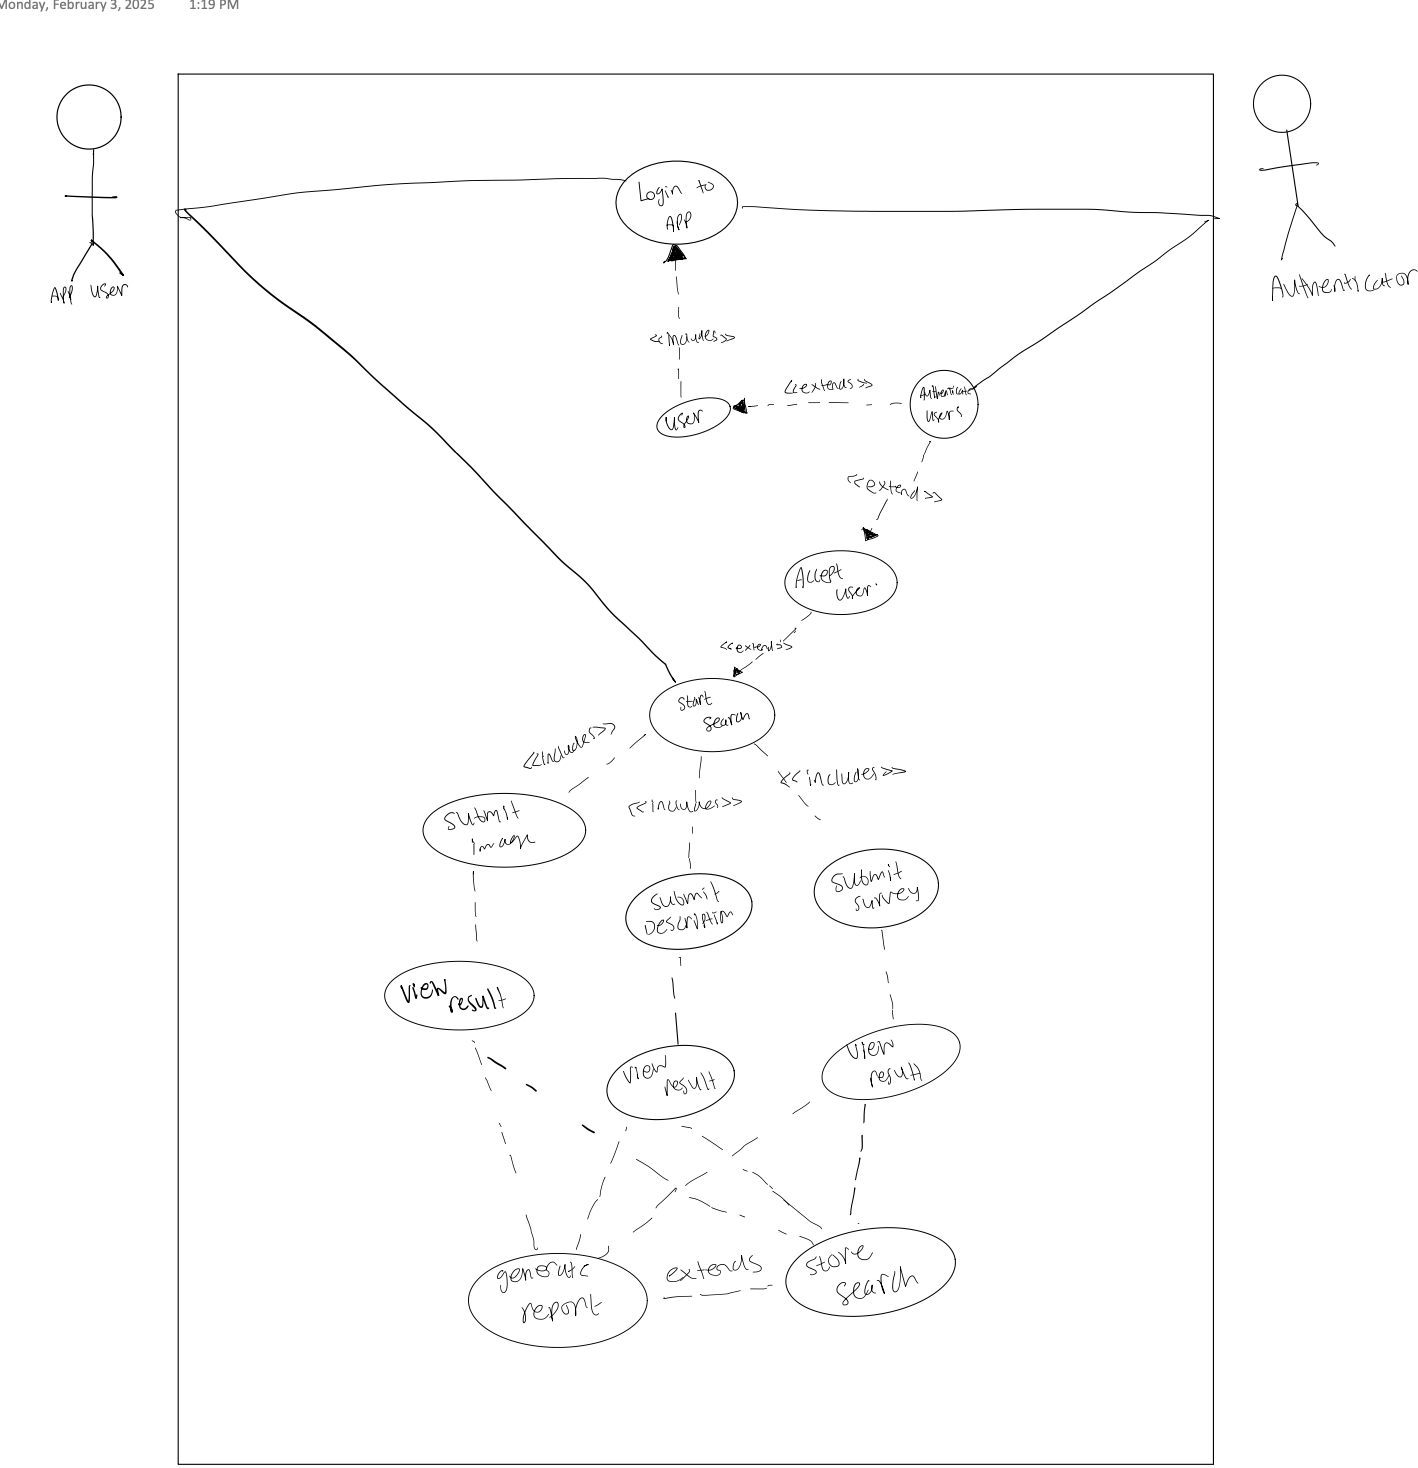 Monday, February 3, 2025 1:19 PM
Login to
APP
APP user
Authenticator
<<includes>>
<<extends>>
Authenticate
users
user
<<extend>>
Accept
user.
<<extends>>
start
search
<<includes>>
<<includes>>
<<includes>>
submit
image
submit
Description
submit
survey
view
result
view
result
view
result
generate
report
extends
store
search